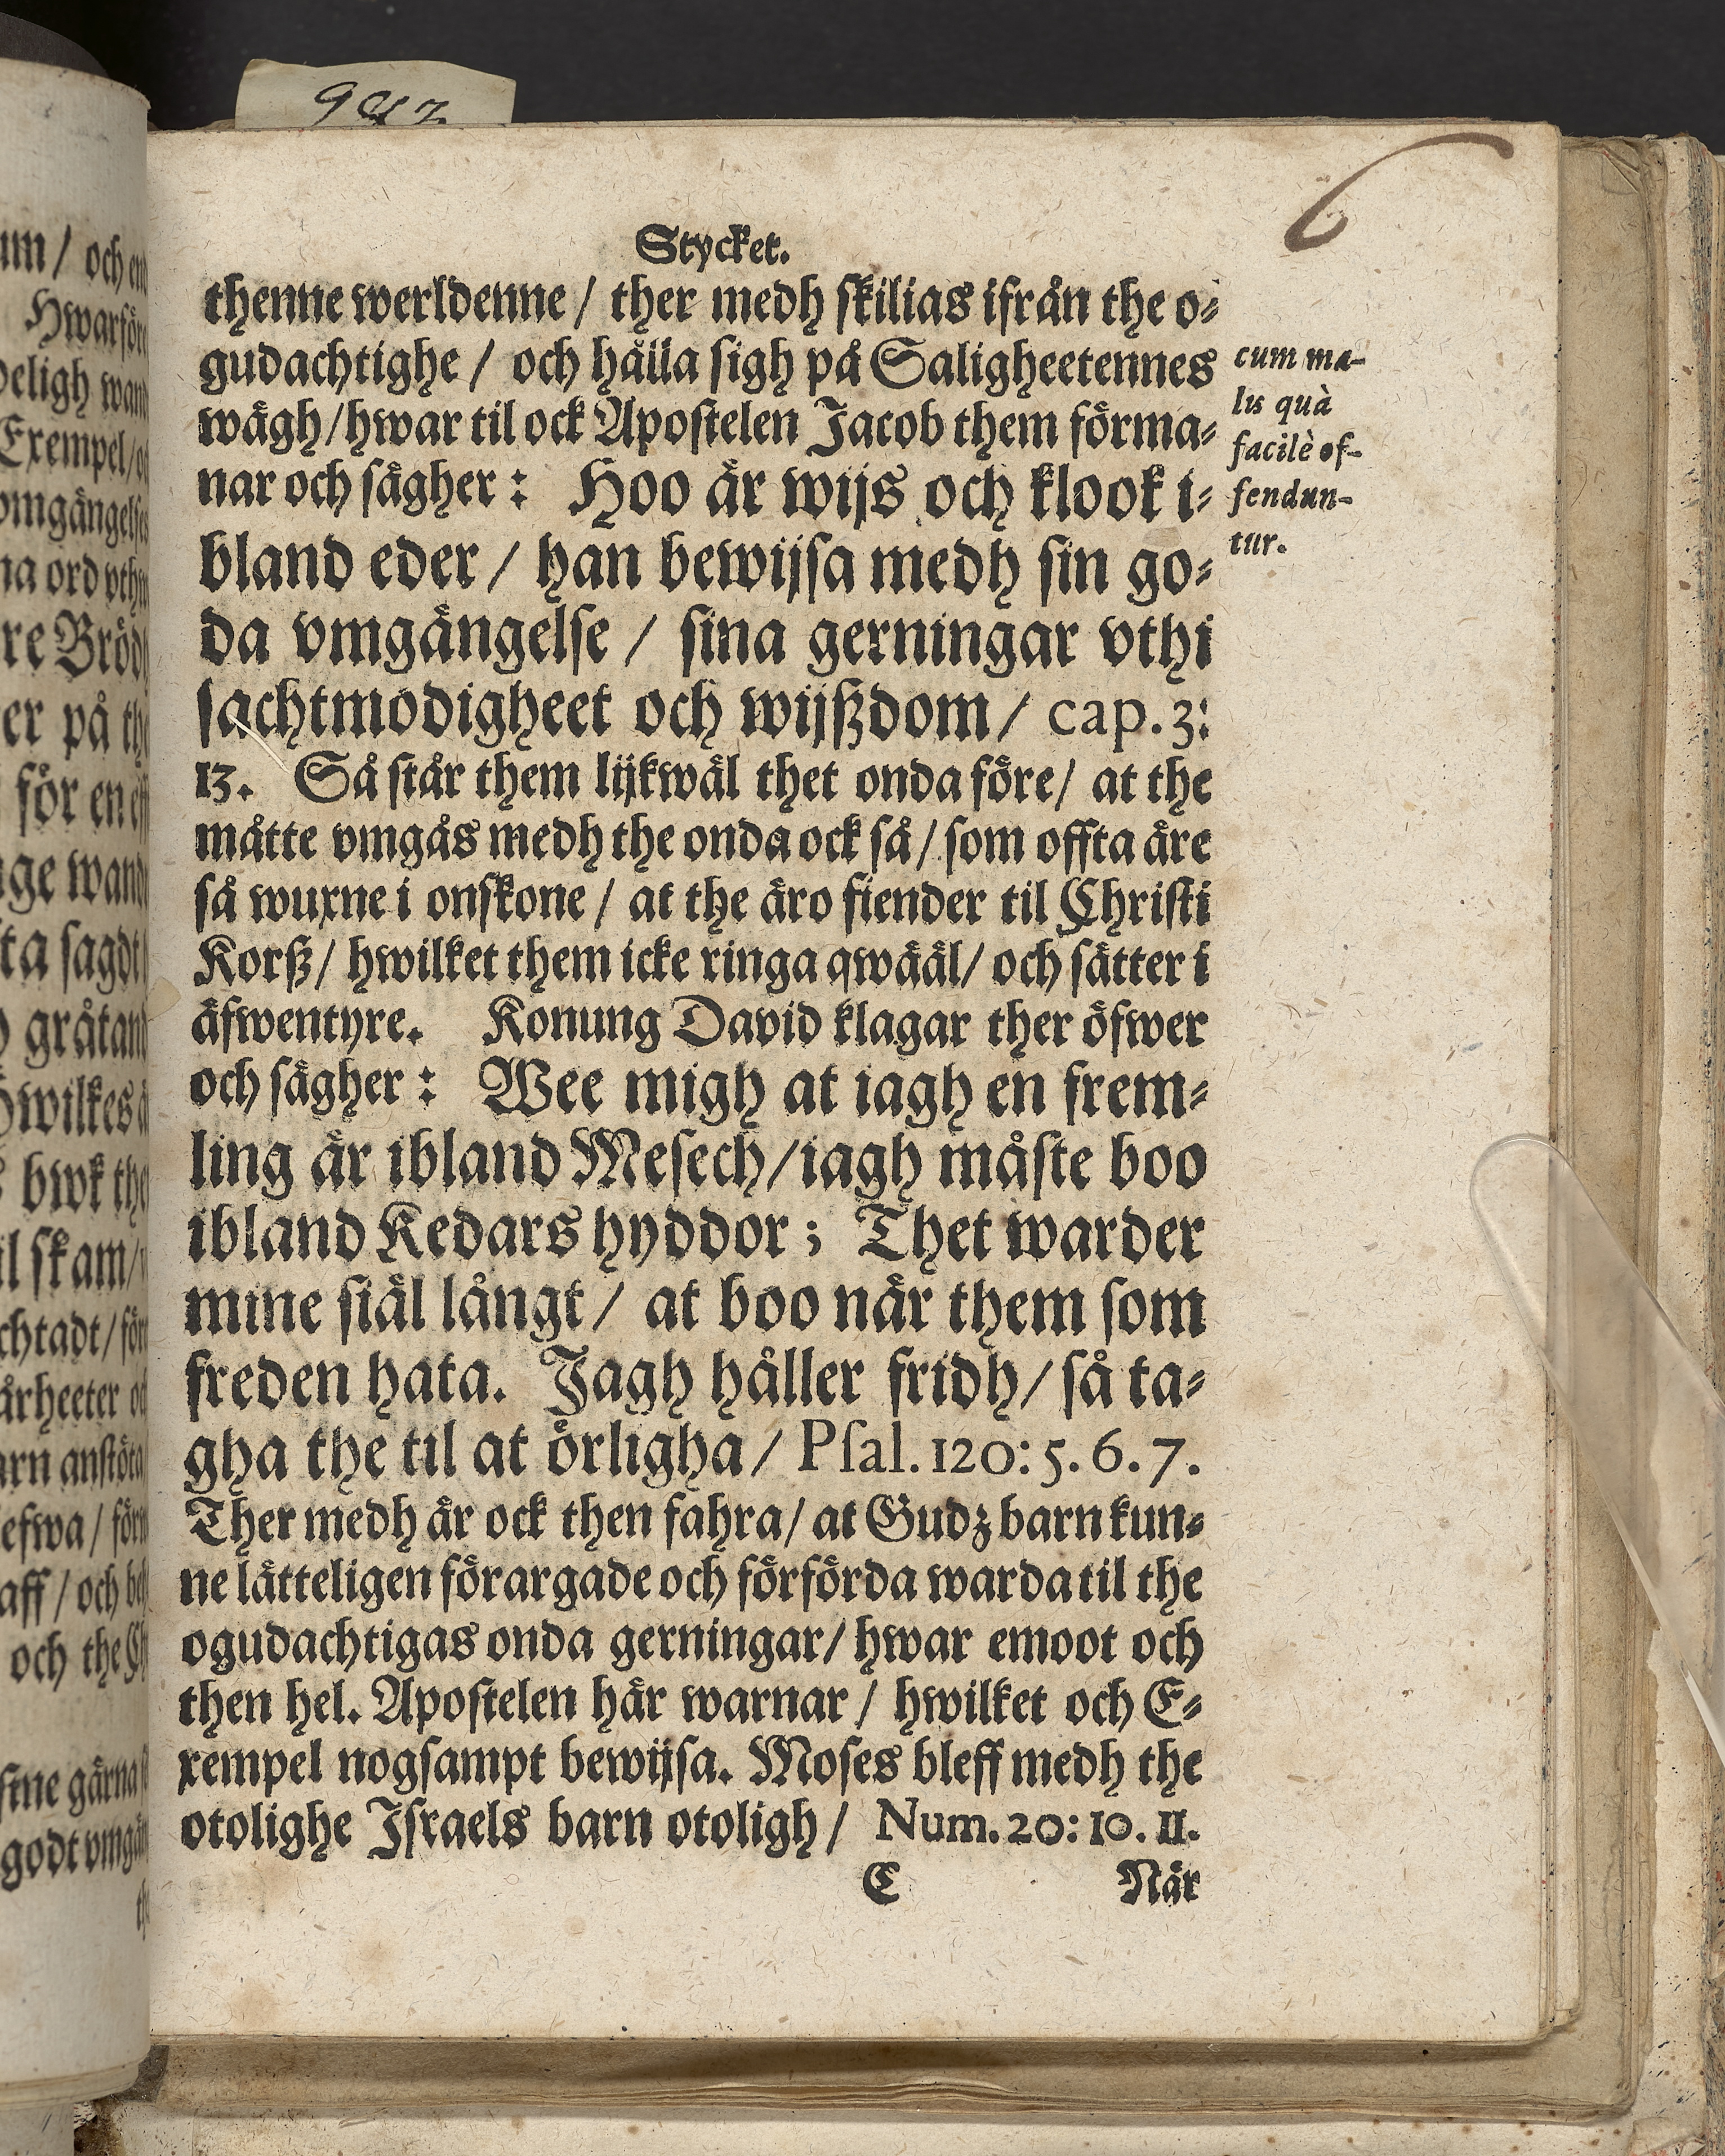 Stycket.
thenne werldenne / ther medh skilias ifrån the o-
gudachtighe / och hålla sigh på Saligheetennes
wägh/hwar til ock Apostelen Jacob them förma-
nar och sägher: Hoo är wijs och klook i-
bland eder / han bewijsa medh sin go-
da vmgängelse / sina gerningar vthi
sachtmodigheet och wijßdom / cap. 3:
13. Så står them lijkwäl thet onda före/ at the
måtte vmgås medh the onda ock så / som offta äre
så wuxne i onskone / at the äro fiender til Christi
Korß/ hwilket them icke ringa qwääl/ och sätter i
äfwentyre. Konung David klagar ther öfwer
och sägher: Wee migh at iagh en frem-
ling är ibland Mesech/iagh måste boo
ibland Kedars hyddor; Thet warder
mine siäl långt / at boo när them som
freden hata. Jagh håller fridh/ så ta-
gha the til at örligha / Psal. 120: 5. 6. 7.
Ther medh är ock then fahra/ at Gudz barn kun-
ne lätteligen förargade och förförda warda til the
ogudachtigas onda gerningar/ hwar emoot och
then hel. Apostelen här warnar / hwilket och E-
xempel nogsampt bewijsa. Moses bleff medh the
otolighe Israels barn otoligh / Num. 20: 10. 11.
C När
cum ma-
lis quà
facilè of-
fendun-
tur.
6
um / och
Hwarför
deligh
Exempel/
omgängelse
na ord
re
er på
för en
ge
ta sagdt
gråtand
wilkes
bwk
il skam/
chtadt /
årheeter
arn
efwa /
aff / och
och the
sine gärna
godt